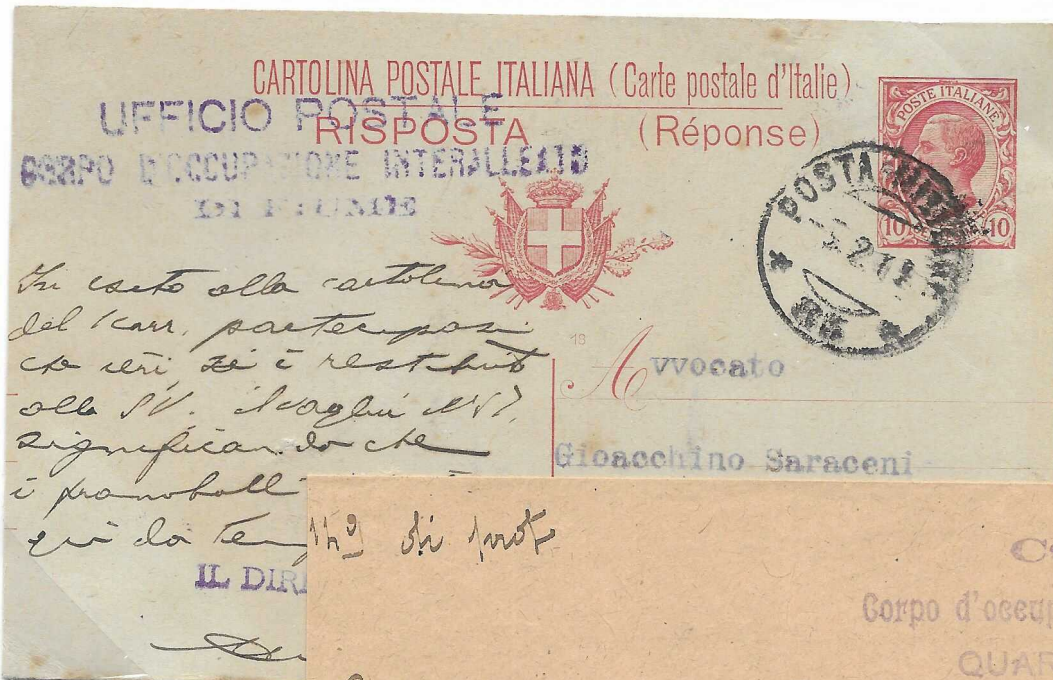 CARTOLINA POSTALE ITALIANA (Carte postale d'Italie)
RISPOSTA (Réponse)
UFFICIO POSTALE
CORPO D'OCCUPAZIONE INTERALLEATO
DI FIUME
POSTE ITALIANE
10 10
POSTA MILITARE
85
In esito alla cartolina
del parteciposi
che ieri si è restituit
alla SV. N 57
significando che
i francobolli
qui da temp
IL DIRE
18
Avvocato
Gioacchino Saraceni
di prot
Corpo d'occup
QUAR